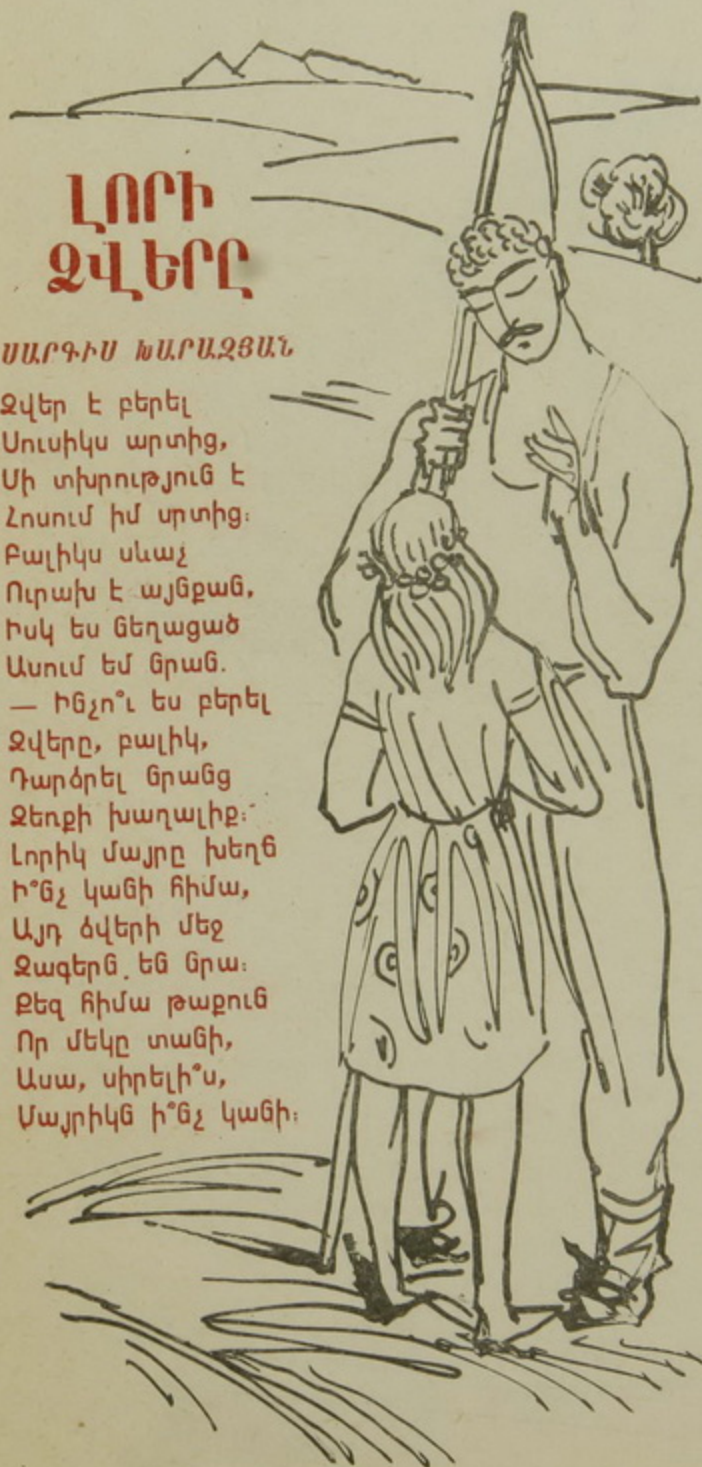 ԼՈՐԻ
ՁՎԵՐԸ
ՍԱՐԳԻՍ ԽԱՐԱԶՅԱՆ
Ձվեր է բերել
Սուսիկս արտից,
Մի տխրություն է
Հոսում իմ սրտից։
Բալիկս սևաչ
Ուրախ է այնքան,
Իսկ ես նեղացած
Ասում եմ նրան.
— Ինչո՞ւ ես բերել
Ձվերը, բալիկ,
Դարձրել նրանց
Ձեռքի խաղալիք։
Լորիկ մայրը խեղճ
Ի՞նչ կանի հիմա,
Այդ ձվերի մեջ
Ձագերն են նրա։
Քեզ հիմա թաքուն
Որ մեկը տանի,
Ասա, սիրելի՞ս,
Մայրիկն ի՞նչ կանի։